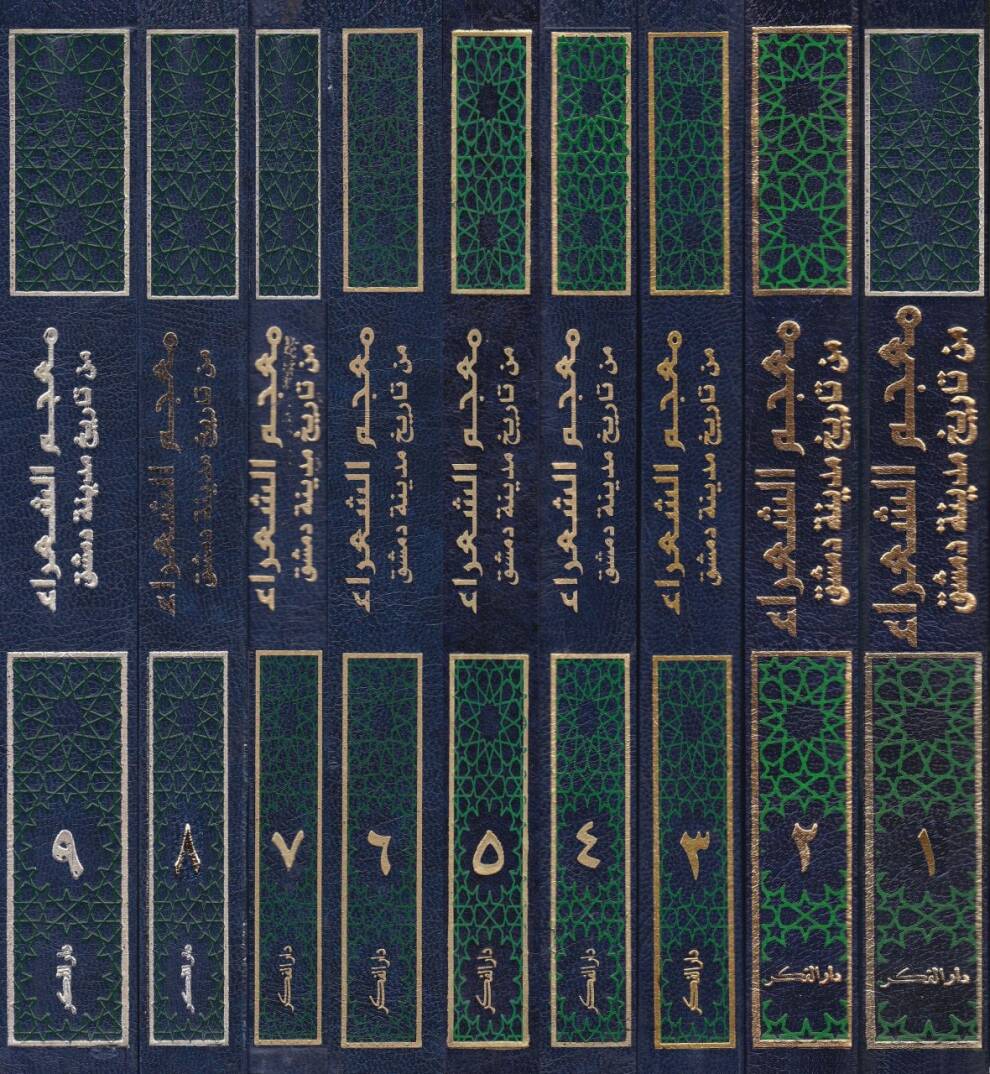 معجم الشعراء
من تاريخ مدينة دمشق
١
دار الفكر
معجم الشعراء
من تاريخ مدينة دمشق
٢
دار الفكر
معجم الشعراء
من تاريخ مدينة دمشق
٣
دار الفكر
معجم الشعراء
من تاريخ مدينة دمشق
٤
دار الفكر
معجم الشعراء
من تاريخ مدينة دمشق
٥
دار الفكر
معجم الشعراء
من تاريخ مدينة دمشق
٦
دار الفكر
معجم الشعراء
من تاريخ مدينة دمشق
٧
دار الفكر
معجم الشعراء
من تاريخ مدينة دمشق
٨
دار الفكر
معجم الشعراء
من تاريخ مدينة دمشق
٩
دار الفكر